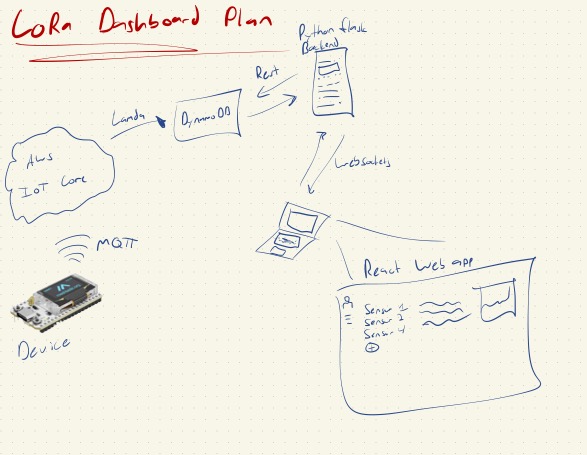 LoRa Dashboard Plan
Python flask
Backend
Rest
Lamda
DynamoDB
AWS
IoT Core
Websockets
MQTT
Device
React Web app
Sensor 1
Sensor 2
Sensor 4